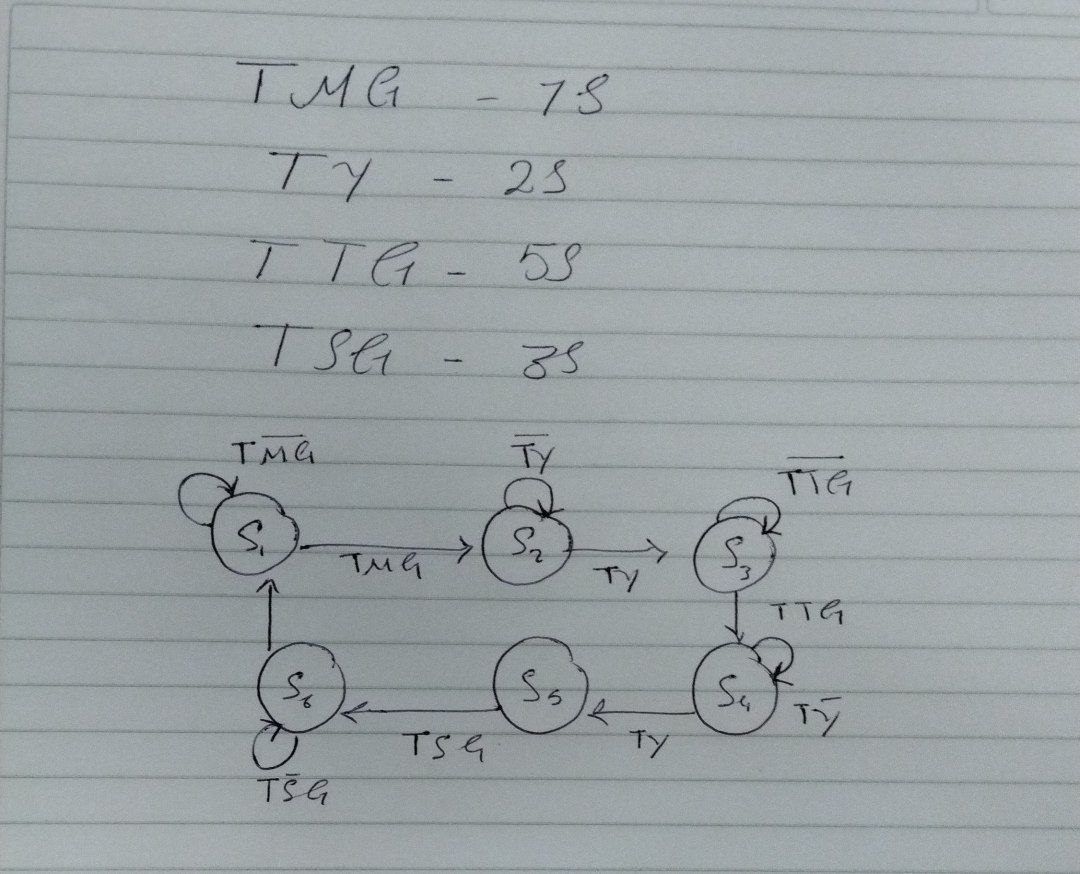 TMG - 7S
TY - 2S
TTG - 5S
TSG - 3S
T̅M̅G̅ T̅Y̅ T̅T̅G̅
S₁ TMG S₂ TY S₃
TTG
S₆ TSG S₅ TY S₄ TY̅
TS̅G